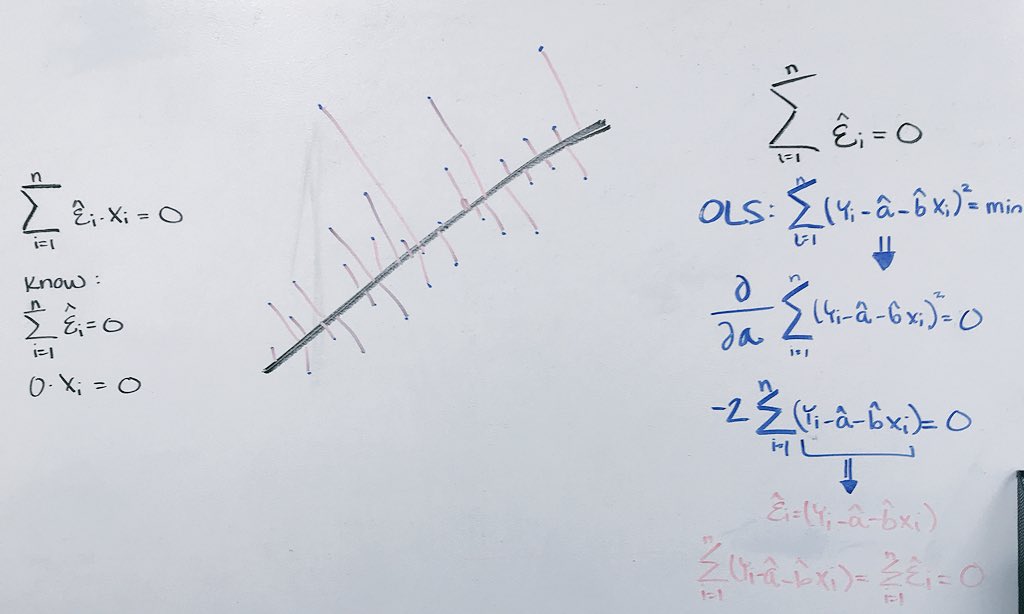 ∑ᵢ₌₁ⁿ ε̂ᵢ · xᵢ = 0
Know:
∑ᵢ₌₁ⁿ ε̂ᵢ = 0
0 · xᵢ = 0
∑ᵢ₌₁ⁿ ε̂ᵢ = 0
OLS: ∑ᵢ₌₁ⁿ (Yᵢ - â - b̂ xᵢ)² = min
⇓
∂/∂a ∑ᵢ₌₁ⁿ (Yᵢ - â - b̂ xᵢ)² = 0
-2 ∑ᵢ₌₁ⁿ (Yᵢ - â - b̂ xᵢ) = 0
⇓
ε̂ᵢ = (Yᵢ - â - b̂ xᵢ)
∑ᵢ₌₁ⁿ (Yᵢ - â - b̂ xᵢ) = ∑ᵢ₌₁ⁿ ε̂ᵢ = 0